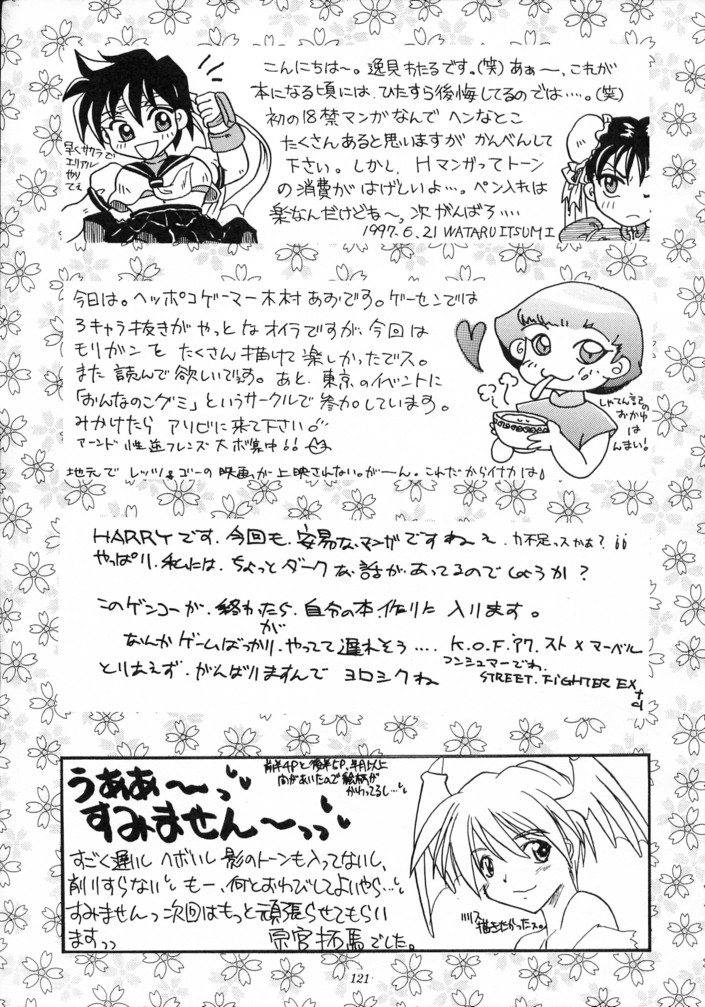 こんにちは〜。逸見わたるです。(笑)あぁ〜、これが
本になる頃には、ひたすら後悔してるのでは‥‥。(笑)
初の18禁マンガなんでヘンなとこ
たくさんあると思いますがかんべんして
下さい。しかし、Hマンガってトーン
の消費がはげしいよ…。ペン入れは
楽なんだけどね〜、次がんばろ‥‥
1997.6.21 WATARU ITSUMI
早くサクラで
エリアル
やりてぇ
今日は。ヘッポコゲーマー木村あおです。ゲーセンでは
3キャラ抜きがやっとなオイラですが、今回は
モリガンをたくさん描けて楽しかったでス。
また読んで欲しいでス。あと、東京のイベントに
「おんなのこグミ」というサークルで参加しています。
みかけたら
来て下さい
フレンズ大ボ集中!!
おかゆは
んまい!
地元でレッツ&ゴーの映画が上映されない。が〜ん。これだからイナカは
HARRYです、今回も、安易なマンガですねぇ、力不足っスかぁ?
やっぱり、私には、ちょっとダークな話が、あってるのでしょうか?
このゲンコーが、終わったら、自分の本、作りに入ります。
なんかゲームばっかりが、やってて遅れそう‥‥ K.O.F.'97、スト×マーベル
コンシュマーでわ、
STREET.FIGHTER EX+α
とりあえず、がんばりますんでヨロシクね
うああ〜っ
すみません〜っっ
前半4Pと後半5P、半月以上
間があいたので絵柄が
かわってるし…
すごく遅いしヘボいし影のトーンも入ってないし、
削りすらない もー、何とおわびしてよいやら…
すみませんっ次回はもっと頑張らせてもらい
ますっっ
でした。
描きたかったス。
121